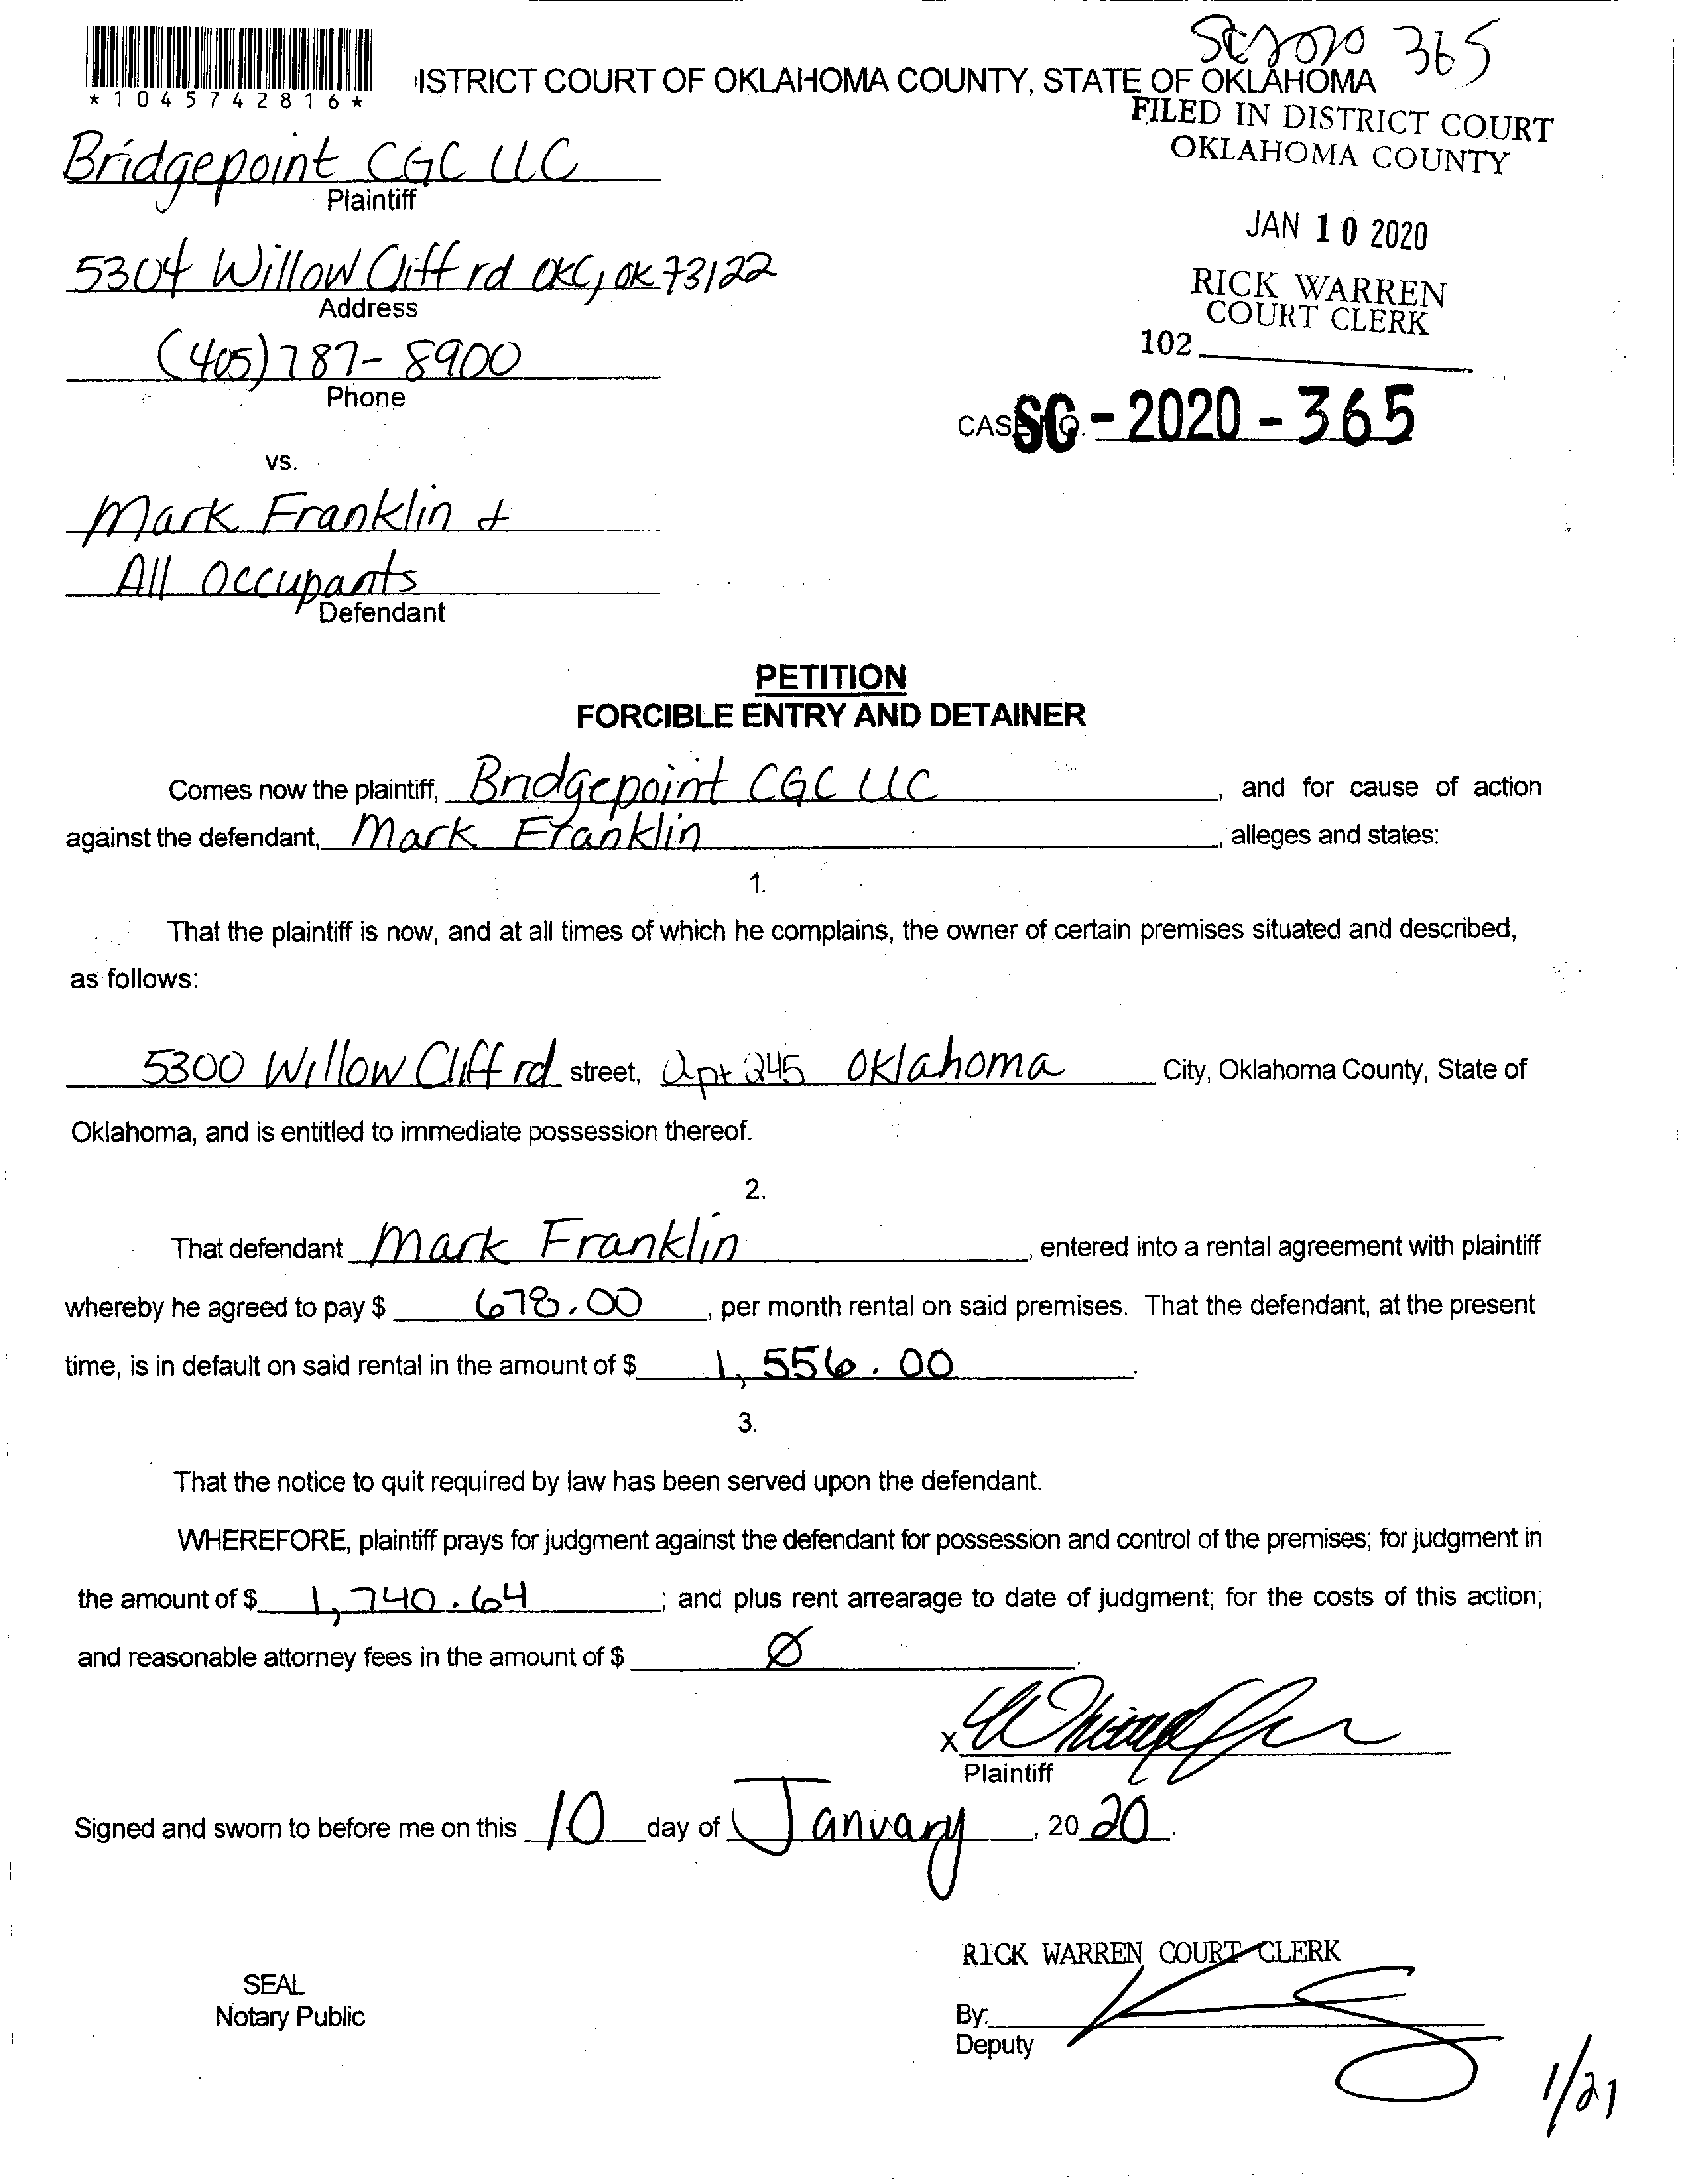 SC2020 365
*1045742816*
ISTRICT COURT OF OKLAHOMA COUNTY, STATE OF OKLAHOMA
FILED IN DISTRICT COURT
OKLAHOMA COUNTY
Bridgepoint CGC LLC
Plaintiff
JAN 10 2020
5304 Willow Cliff rd OKC, OK 73122
Address
RICK WARREN
COURT CLERK
(405) 787-8900
Phone
102
CASE NO. SC-2020-365
vs.
Mark Franklin &
All Occupants
Defendant
PETITION
FORCIBLE ENTRY AND DETAINER
Comes now the plaintiff, Bridgepoint CGC LLC, and for cause of action
against the defendant, Mark Franklin, alleges and states:
1.
That the plaintiff is now, and at all times of which he complains, the owner of certain premises situated and described,
as follows:
5300 Willow Cliff rd street, Apt 245 Oklahoma City, Oklahoma County, State of
Oklahoma, and is entitled to immediate possession thereof.
2.
That defendant Mark Franklin, entered into a rental agreement with plaintiff
whereby he agreed to pay $ 678.00, per month rental on said premises. That the defendant, at the present
time, is in default on said rental in the amount of $ 1,556.00.
3.
That the notice to quit required by law has been served upon the defendant.
WHEREFORE, plaintiff prays for judgment against the defendant for possession and control of the premises; for judgment in
the amount of $ 1,740.64; and plus rent arrearage to date of judgment; for the costs of this action;
and reasonable attorney fees in the amount of $ Ø.
X
Plaintiff
Signed and sworn to before me on this 10 day of January, 2020.
RICK WARREN COURT CLERK
SEAL
Notary Public
By:
Deputy
1/21